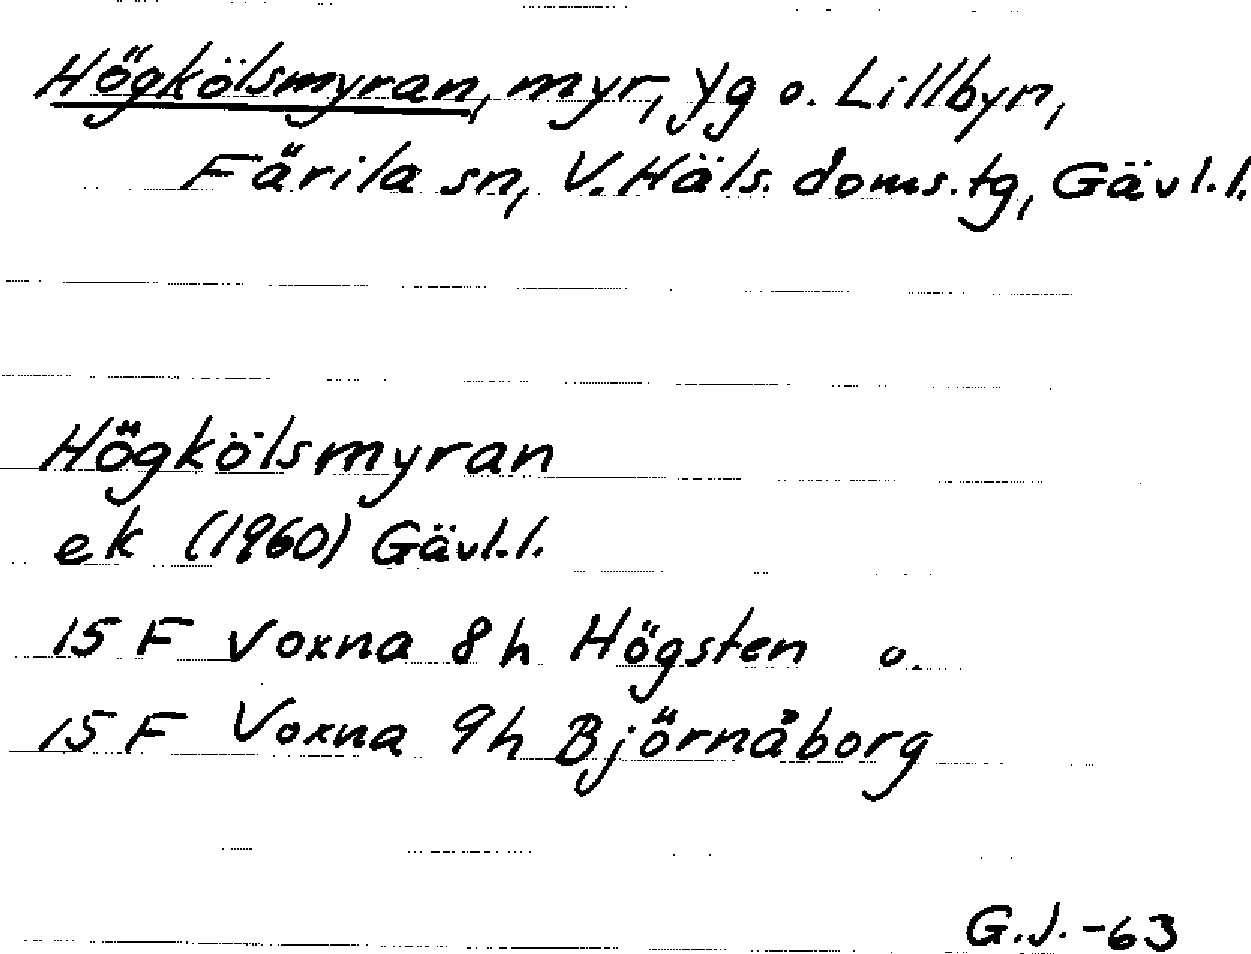 Högkölsmyran, myr, Yg o. Lillbyn,
Färila sn, V. Häls. doms.tg, Gävl.l.
Högkölsmyran
ek (1960) Gävl.l.
15 F Voxna 8h Högsten o.
15 F Voxna 9h Björnåborg
G.J.-63